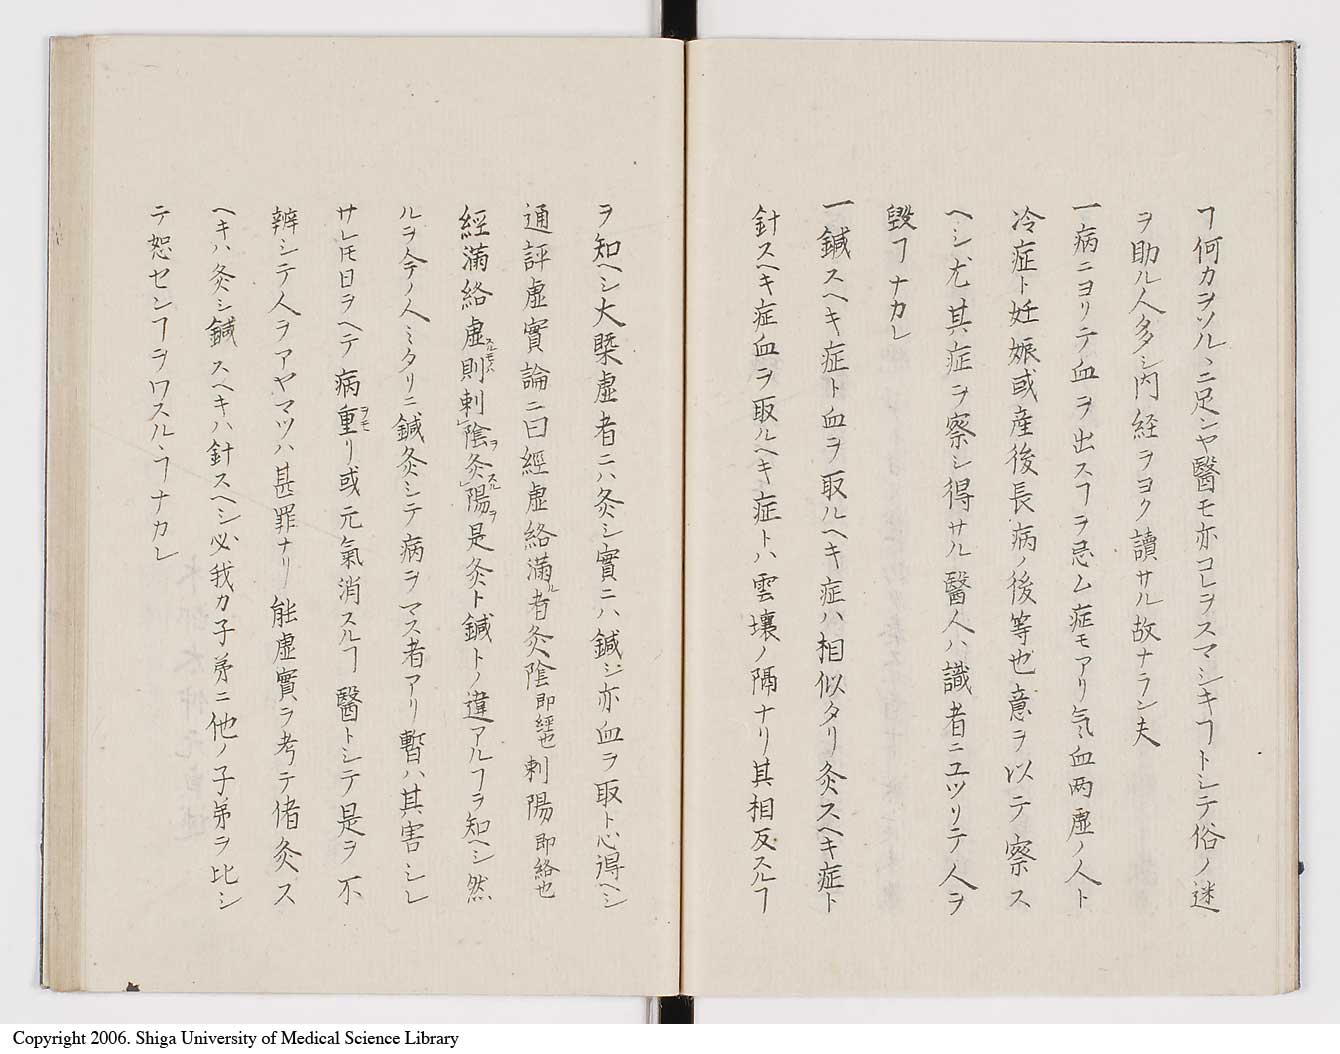 ヿ何カヲソルヽニ足ンヤ醫モ亦コレヲスマシキヿトシテ俗ノ迷
ヲ助ル人多シ内経ヲヨク讀サル故ナラン夫
一病ニヨリテ血ヲ出スヿヲ忌ム症モアリ気血两虚ノ人ト
冷症ト妊娠或産後長病ノ後等也意ヲ以テ察ス
ヘシ尤其症ヲ察シ得サル醫人ハ識者ニユツリテ人ヲ
毀フナカレ
一鍼スヘキ症ト血ヲ取ルヘキ症ハ相似タリ灸スヘキ症ト
針スヘキ症血ヲ取ルヘキ症トハ雲壤ノ隔ナリ其相反スルヿ
ヲ知ヘシ大槩虚者ニハ灸シ實ニハ鍼シ亦血ヲ取ト心得ヘシ
通評虚實論ニ曰經虚絡滿ル者灸陰即經也刺陽即絡也
經滿絡虚スルモノハ則刺陰ヲ灸スル陽ヲ是灸ト鍼トノ違アルヿヲ知ヘシ然
ルヲ今ノ人ミタリニ鍼灸シテ病ヲマス者アリ暫ハ其害シレ
サレ𪜈日ヲヘテ病重ヲモリ或元氣消スルヿ醫トシテ是ヲ不
辨シテ人ヲアヤマツハ甚罪ナリ能虚實ヲ考テ偖灸ス
ヘキハ灸シ鍼スヘキハ針スヘシ必我カ子弟ニ他ノ子弟ヲ比シ
テ恕センヿヲワスルヽヿナカレ
Copyright 2006. Shiga University of Medical Science Library